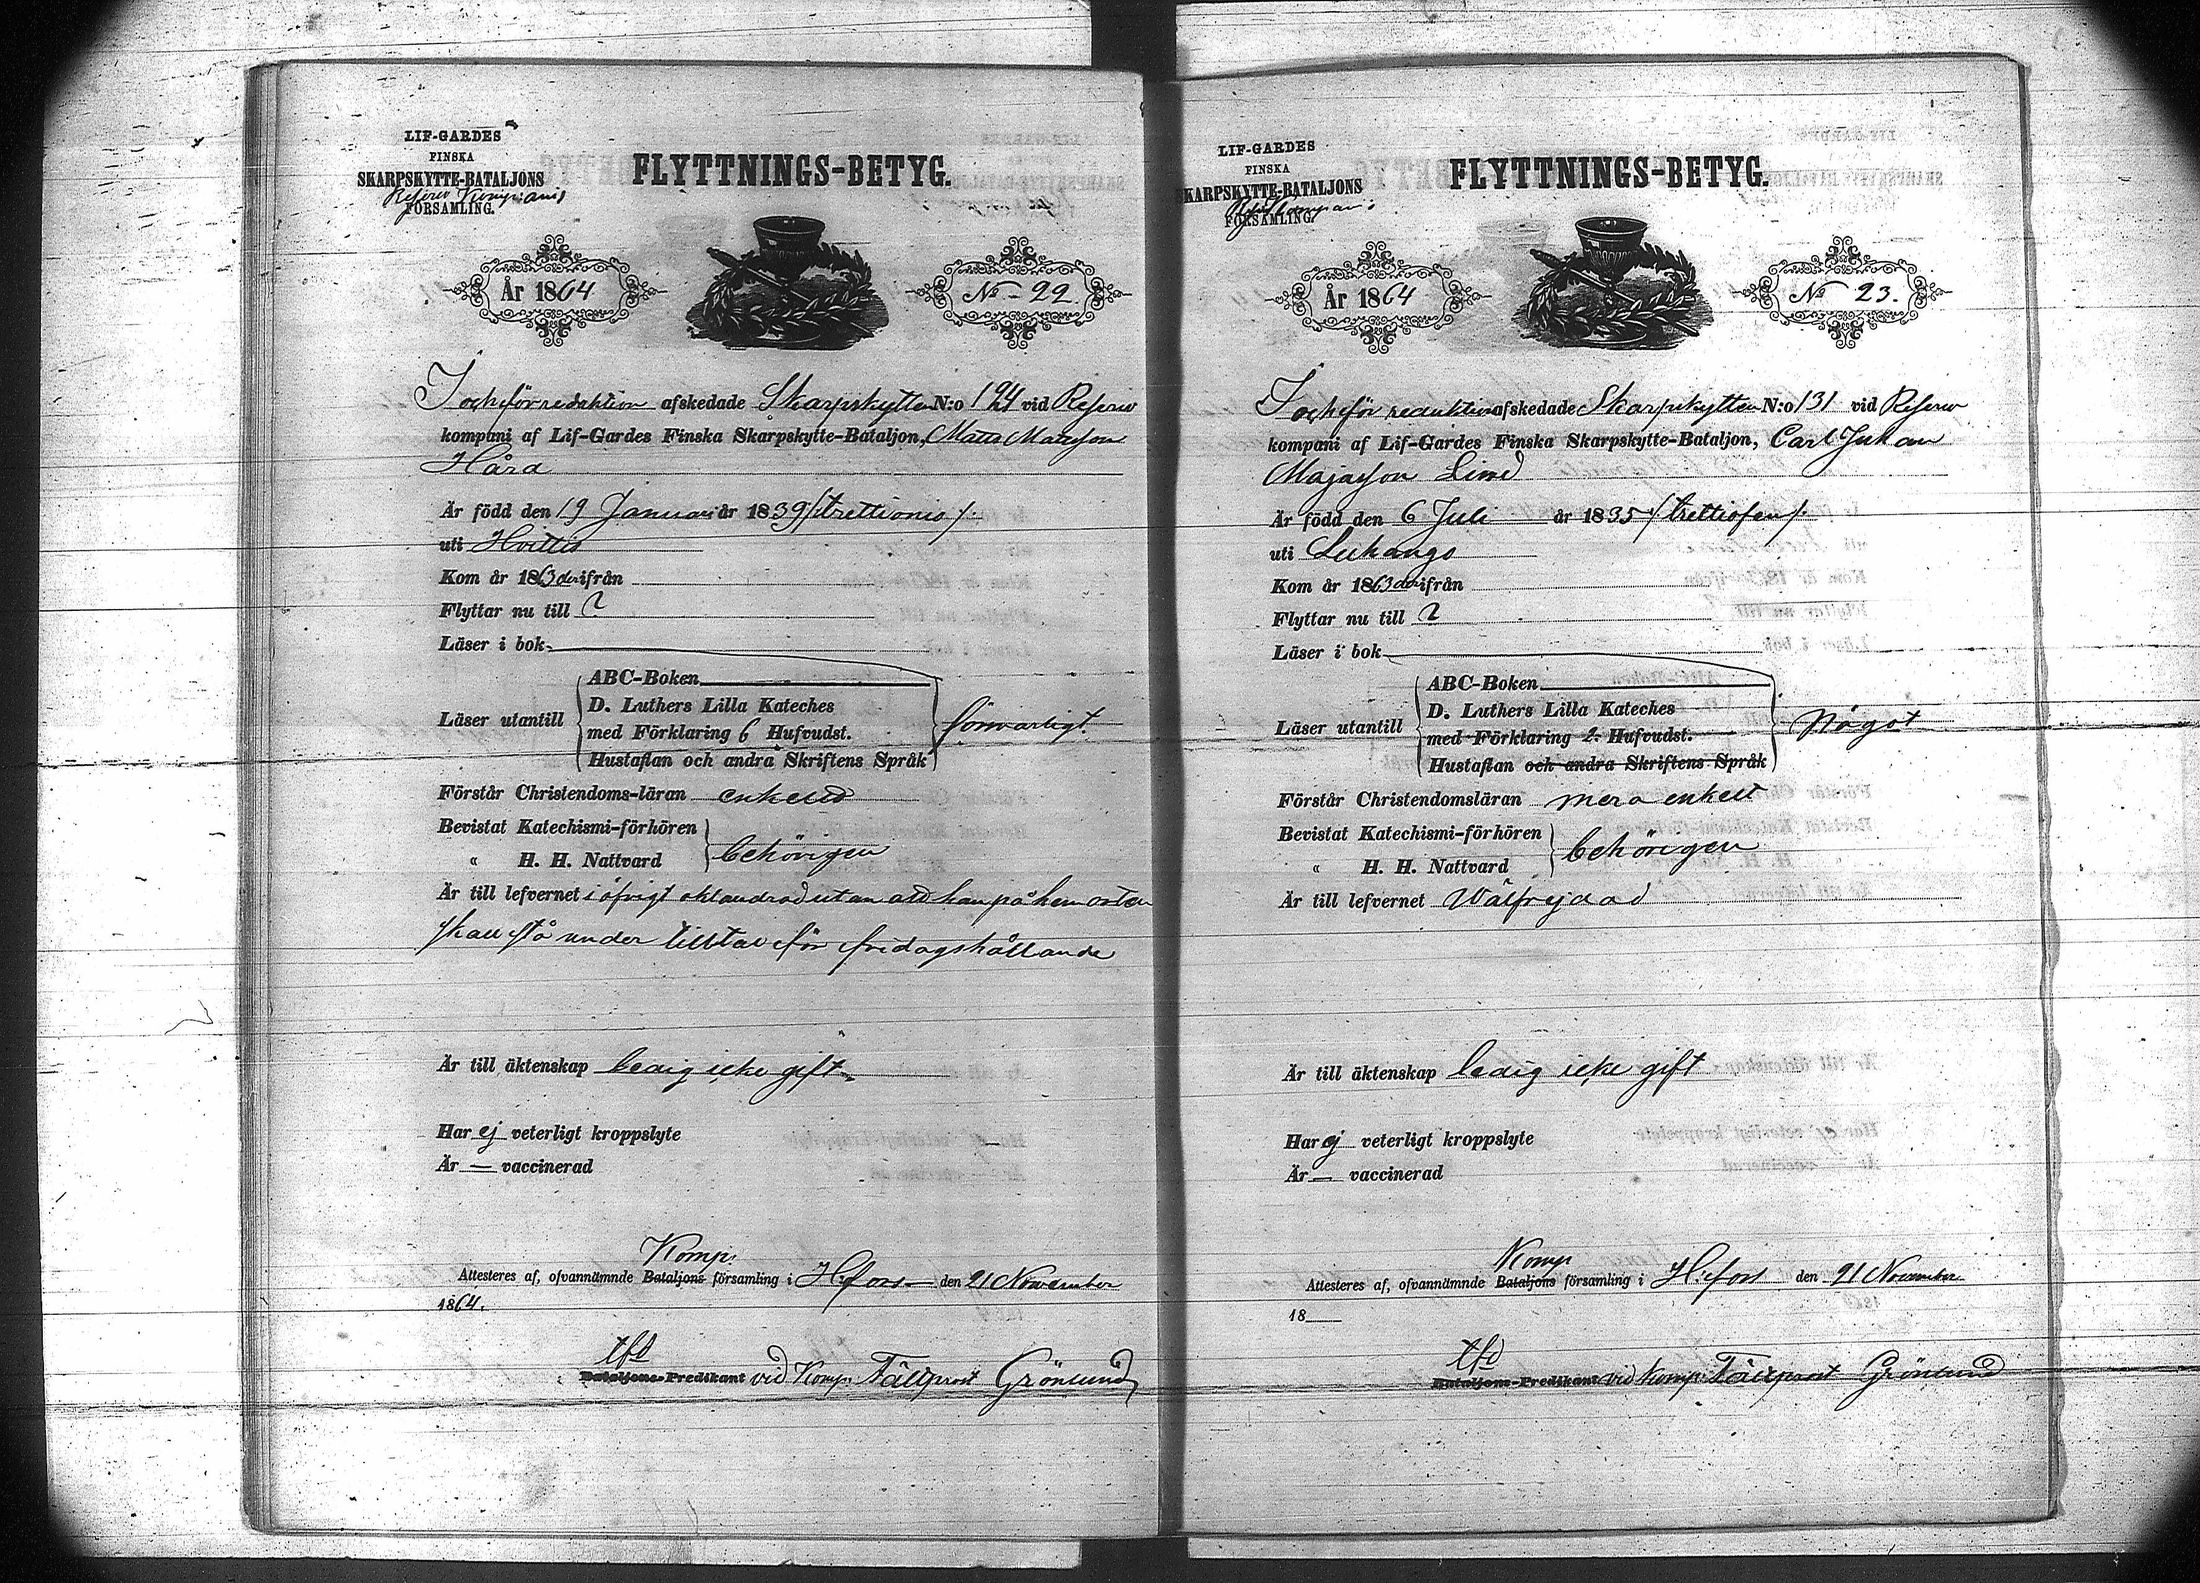 LIF-GARDES
FINSKA
SKARPSKYTTE-BATALJONS
Reserv Kompanis
FÖRSAMLING.
FLYTTNINGS-BETYG.
År 1864
No - 22.
afskedade Skarpskytten N:o 194 vid Reserv
kompani af Lif-Gardes Finska Skarpskytte-Bataljon, Matts Matsson
Hård
Är född den 19 Januari år 1839 /:trettionio/:
uti Hvittis
Kom år 1863 derifrån
Flyttar nu till ?
Läser i bok
ABC-Boken
D. Luthers Lilla Kateches
Läser utantill
med Förklaring 6 Hufvudst.
försvarligt
Hustaflan och andra Skriftens Språk
Förstår Christendoms-läran enkelt
Bevistat Katechismi-förhören
behörigen
" H. H. Nattvard
Är till lefvernet i öfrigt oklandrad utan att han på hemorten
skall stå under tilltal för fridagshållande
Är till äktenskap ledig icke gift
Har ej veterligt kroppslyte
Är — vaccinerad
Komp.
Attesteres af, ofvannämnde Bataljons församling i H:fors den 21 November
1864.
tfd
Bataljons-Predikant vid Komp. Fältprost Grönlund
LIF-GARDES
FINSKA
SKARPSKYTTE-BATALJONS
FÖRSAMLING.
FLYTTNINGS-BETYG.
År 1864
No 23.
afskedade Skarpskytten N:o 131 vid Reserv
kompani af Lif-Gardes Finska Skarpskytte-Bataljon, Carl Johan
Majasson Lind
Är född den 6 Juli år 1835 /:trettiofem/:
uti Luhango
Kom år 1863 derifrån
Flyttar nu till ?
Läser i bok
ABC-Boken
D. Luthers Lilla Kateches
Läser utantill
med Förklaring 2 Hufvudst.
något
Hustaflan och andra Skriftens Språk
Förstår Christendomsläran mera enkelt
Bevistat Katechismi-förhören
behörigen
" H. H. Nattvard
Är till lefvernet Wälfrejdad
Är till äktenskap ledig icke gift
Har ej veterligt kroppslyte
Är — vaccinerad
Komp
Attesteres af, ofvannämnde Bataljons församling i H:fors den 21 November
18
tfd
Bataljons-Predikant vid Komp: Fältprost Grönlund